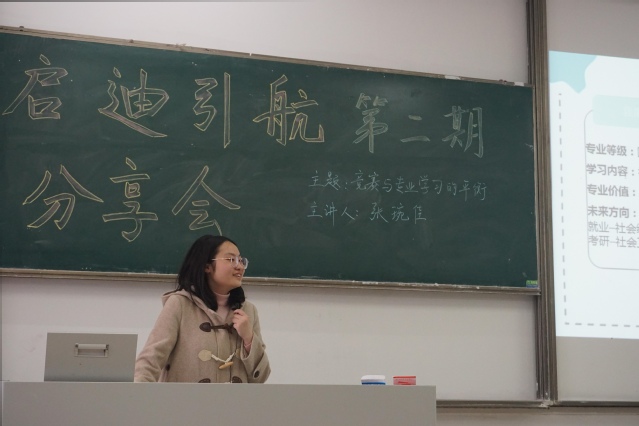 启迪引航 第二期
分享会
主题:竞赛与专业学习的平衡
主讲人:张琬佳
专业等级:
学习内容:
专业价值:
未来方向:
就业--社会
考研--社会